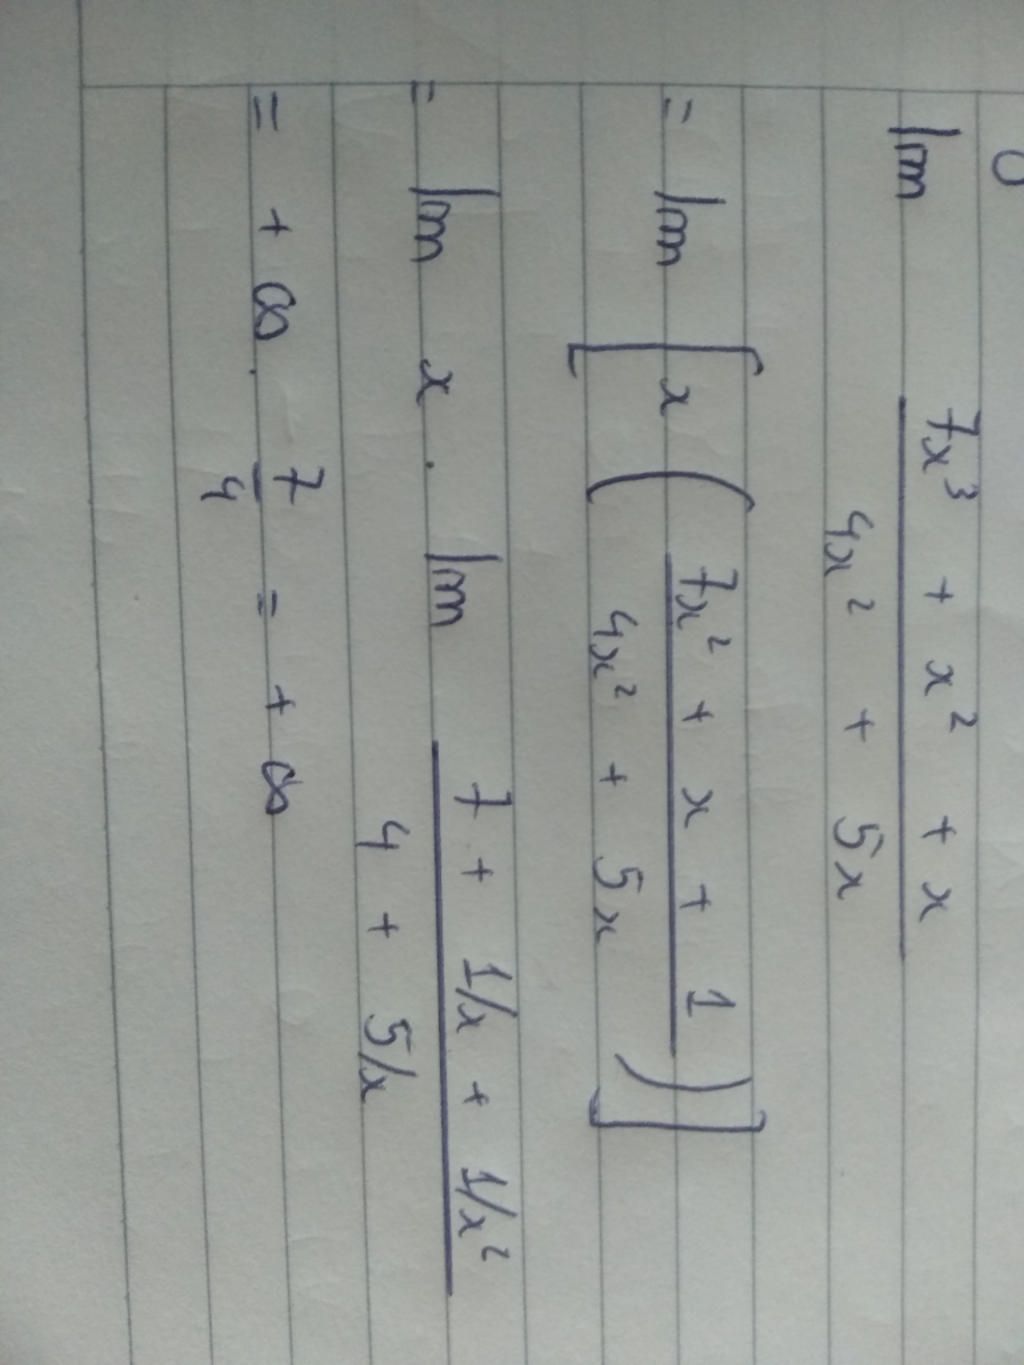 lim (7x³ + x² + x)/(4x² + 5x)
= lim [x ((7x² + x + 1)/(4x² + 5x))]
= lim x . lim (7 + 1/x + 1/x²)/(4 + 5/x)
= + ∞ . 7/4 = + ∞